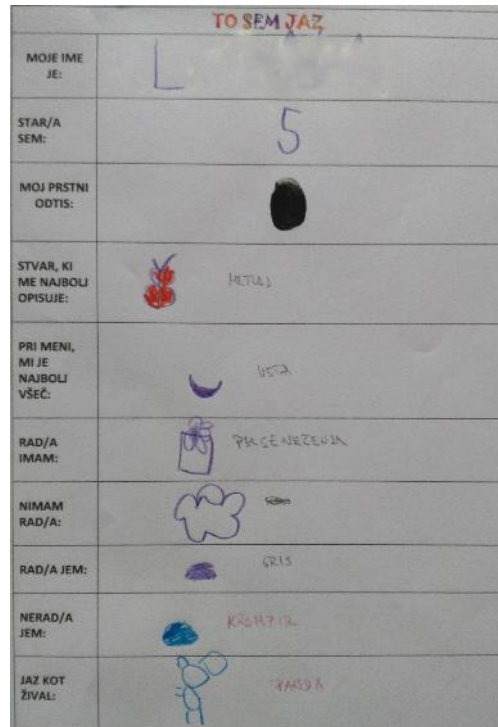 TO SEM JAZ
MOJE IME
JE:
L
STAR/A
SEM:
5
MOJ PRSTNI
ODTIS:
STVAR, KI
ME NAJBOLJ
OPISUJE:
METULJ
PRI MENI,
MI JE
NAJBOLJ
VŠEČ:
USTA
RAD/A
IMAM:
NIMAM
RAD/A:
RAD/A JEM:
GRIS
NERAD/A
JEM:
KROMPIR
JAZ KOT
ŽIVAL:
PANDA